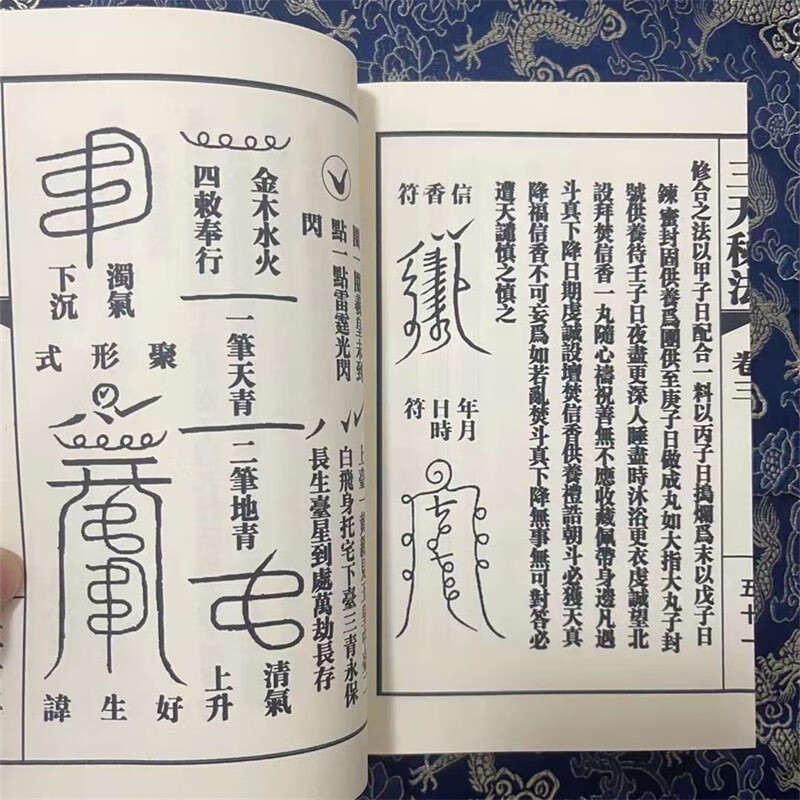 三天秘法
卷三
五十一
修合之法以甲子日配合一料以丙子日搗爛爲末以戊子日
鍊蜜封固供養爲團供至庚子日做成丸如大指大丸子封
號供養待壬子日夜盡更深人睡盡時沐浴更衣虔誠望北
設拜焚信香一丸隨心禱祝善無不應收藏佩帶身邊凡遇
斗真下降日期虔誠設壇焚信香供養禮誥朝斗必獲天真
降福信香不可妄爲如若亂焚斗真下降無事無可對答必
遭天譴慎之慎之
信香符
年月日時符
點一點雷霆光閃
閃
上臺一
白飛身托宅下臺三青永保
長生臺星到處萬劫長存
金木水火
四敕奉行
一筆天青
二筆地青
清氣
上升
濁氣
下沉
聚形式
好生諱